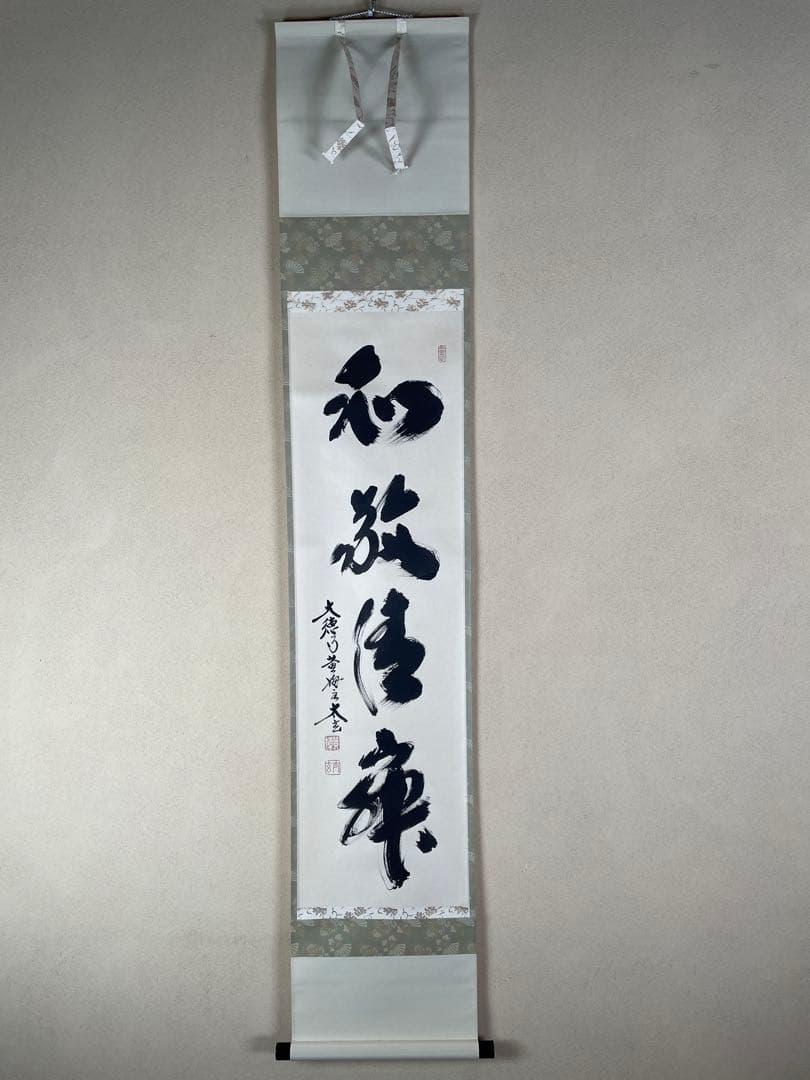 和敬清寂
大徳 黄梅 太玄